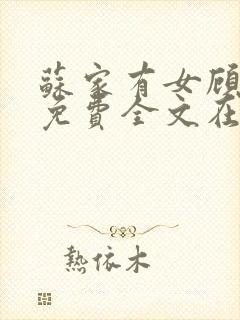 蘇家有女顧
免費全文在
熱依木